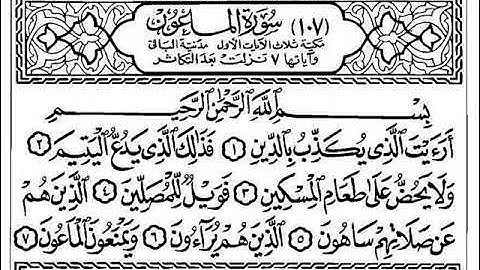 (١٠٧) سُورَةُ المَاعُونِ
مكيّة ثلاث الآيات الأول مدنيّة الباقى
وآياتها ٧ نزلت بعد التكاثر
بِسْمِ ٱللَّهِ ٱلرَّحْمَٰنِ ٱلرَّحِيمِ
أَرَءَيْتَ ٱلَّذِى يُكَذِّبُ بِٱلدِّينِ ١ فَذَٰلِكَ ٱلَّذِى يَدُعُّ ٱلْيَتِيمَ ٢
وَلَا يَحُضُّ عَلَىٰ طَعَامِ ٱلْمِسْكِينِ ٣ فَوَيْلٌ لِّلْمُصَلِّينَ ٤ ٱلَّذِينَ هُمْ
عَن صَلَاتِهِمْ سَاهُونَ ٥ ٱلَّذِينَ هُمْ يُرَآءُونَ ٦ وَيَمْنَعُونَ ٱلْمَاعُونَ ٧